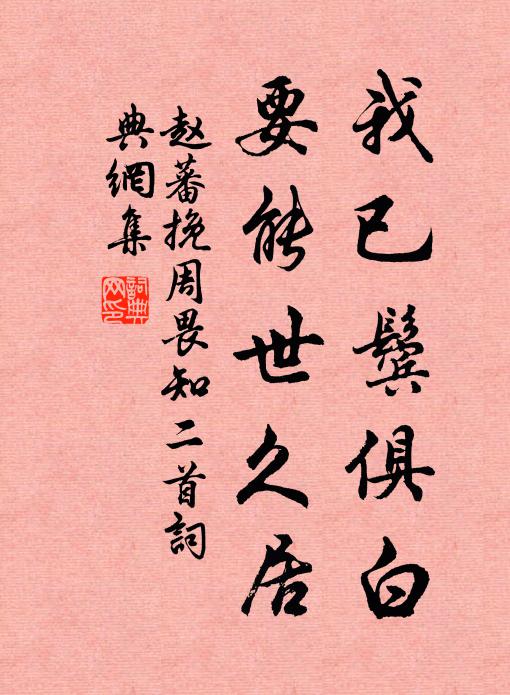 我已鬓俱白
要能世久居
赵蕃挽周畏知二首词
典網集
詞典
网印